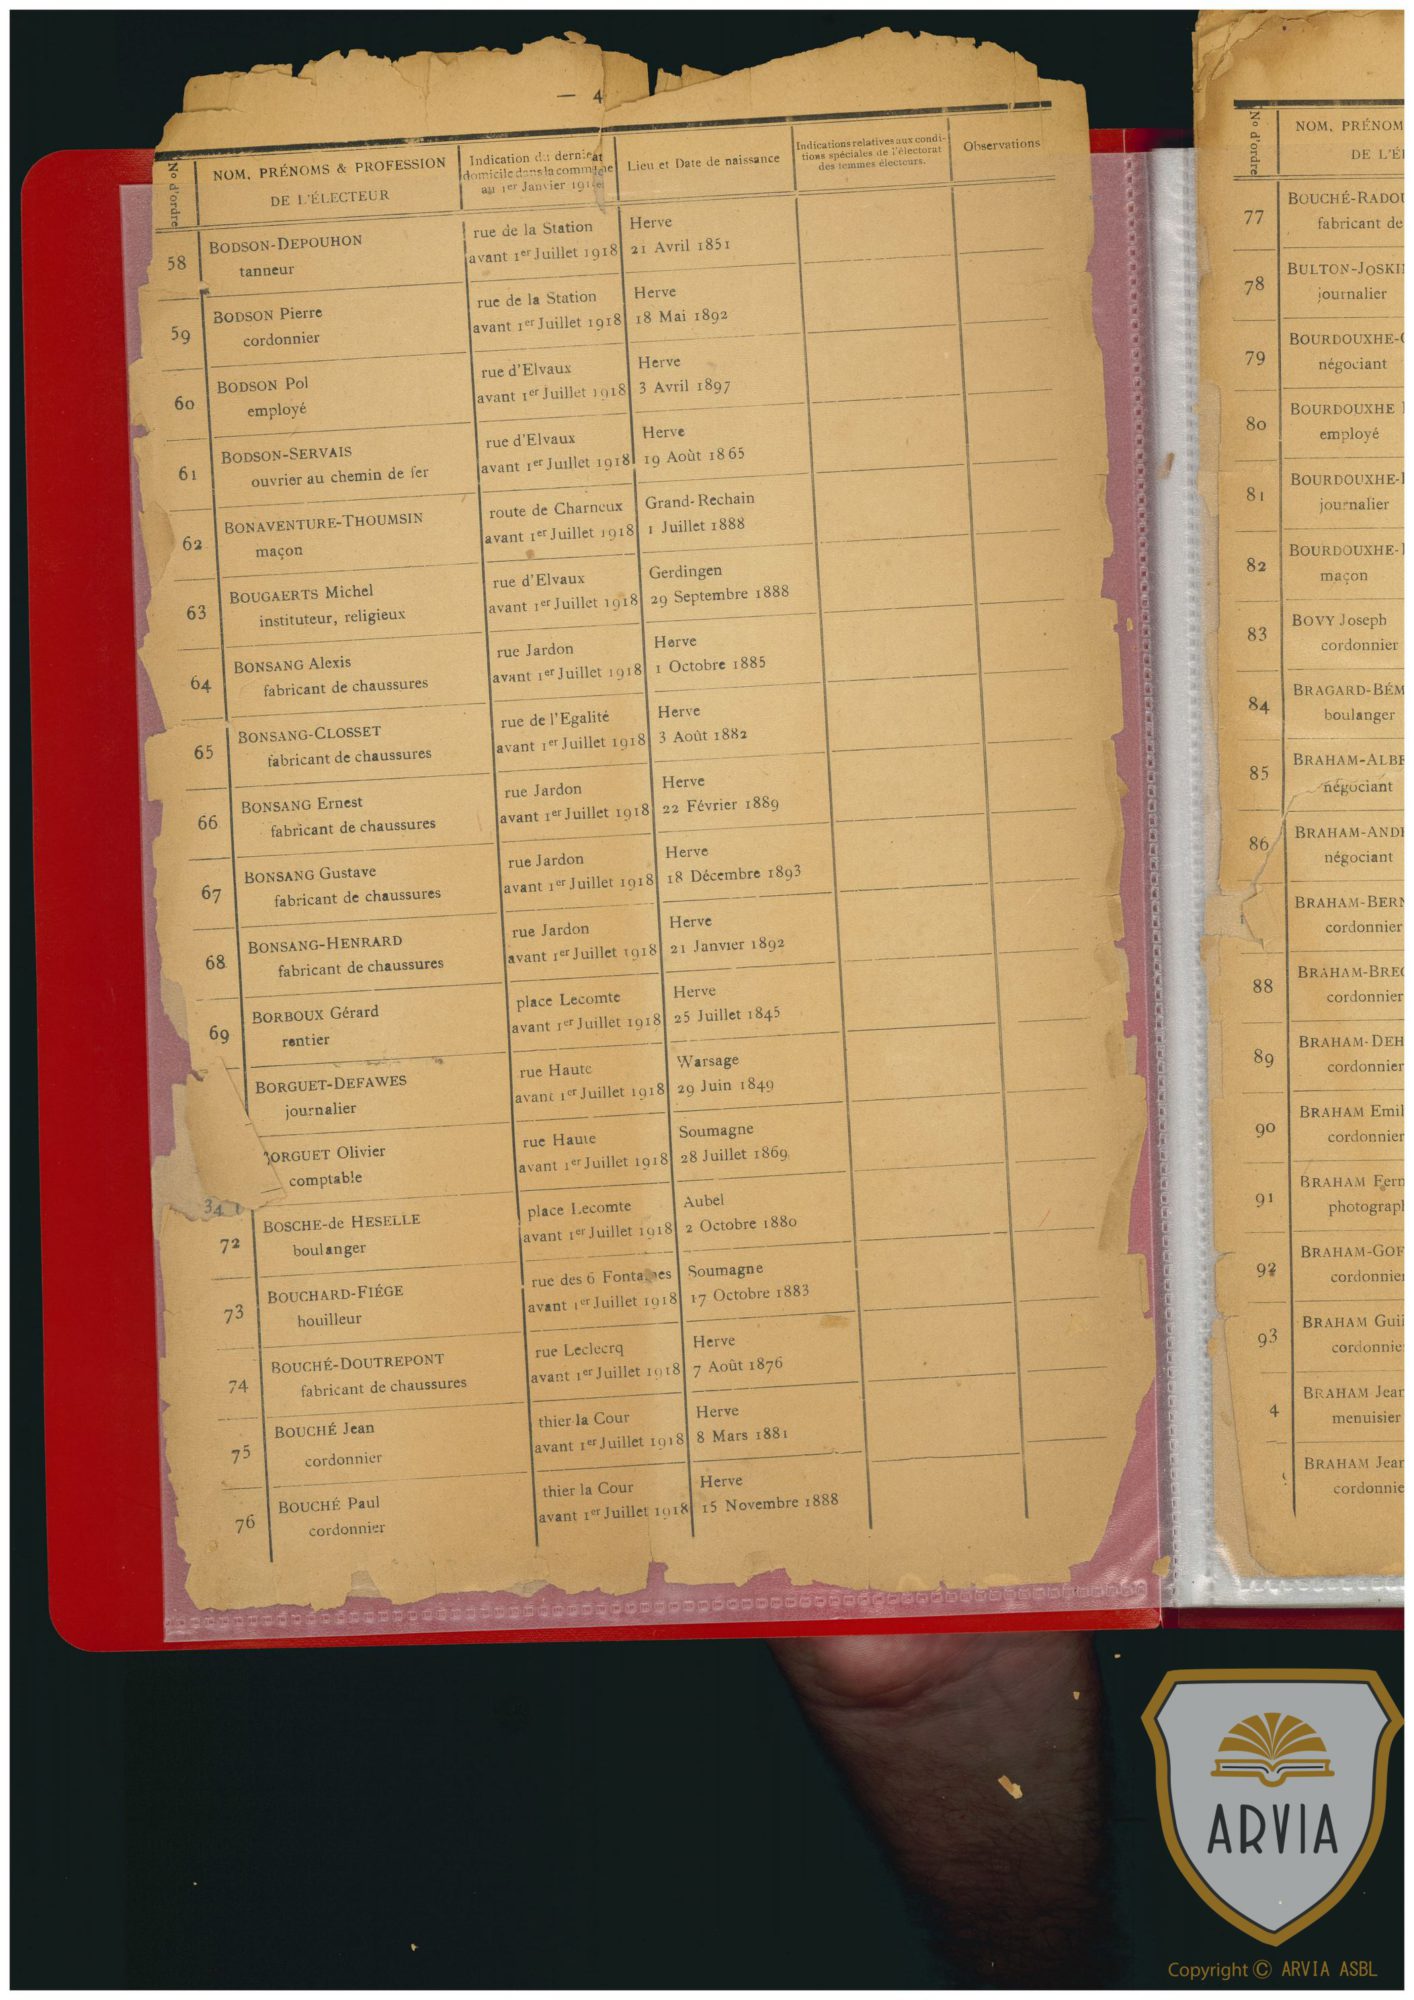 — 4
No d'ordre
NOM, PRÉNOMS & PROFESSION
DE L'ÉLECTEUR
Indication du dernier
domicile dans la commune
au 1er Janvier
Lieu et Date de naissance
Indications relatives aux condi-
tions spéciales de l'électorat
des femmes électeurs.
Observations
58 BODSON-DEPOUHON rue de la Station Herve
tanneur avant 1er Juillet 1918 21 Avril 1851
59 BODSON Pierre rue de la Station Herve
cordonnier avant 1er Juillet 1918 18 Mai 1892
60 BODSON Pol rue d'Elvaux Herve
employé avant 1er Juillet 1918 3 Avril 1897
61 BODSON-SERVAIS rue d'Elvaux Herve
ouvrier au chemin de fer avant 1er Juillet 1918 19 Août 1865
62 BONAVENTURE-THOUMSIN route de Charneux Grand-Rechain
maçon avant 1er Juillet 1918 1 Juillet 1888
63 BOUGAERTS Michel rue d'Elvaux Gerdingen
instituteur, religieux avant 1er Juillet 1918 29 Septembre 1888
64 BONSANG Alexis rue Jardon Herve
fabricant de chaussures avant 1er Juillet 1918 1 Octobre 1885
65 BONSANG-CLOSSET rue de l'Egalité Herve
fabricant de chaussures avant 1er Juillet 1918 3 Août 1882
66 BONSANG Ernest rue Jardon Herve
fabricant de chaussures avant 1er Juillet 1918 22 Février 1889
67 BONSANG Gustave rue Jardon Herve
fabricant de chaussures avant 1er Juillet 1918 18 Décembre 1893
68 BONSANG-HENRARD rue Jardon Herve
fabricant de chaussures avant 1er Juillet 1918 21 Janvier 1892
69 BORBOUX Gérard place Lecomte Herve
rentier avant 1er Juillet 1918 25 Juillet 1845
BORGUET-DEFAWES rue Haute Warsage
journalier avant 1er Juillet 1918 29 Juin 1849
BORGUET Olivier rue Haute Soumagne
comptable avant 1er Juillet 1918 28 Juillet 1869
34
72 BOSCHE-de HESELLE place Lecomte Aubel
boulanger avant 1er Juillet 1918 2 Octobre 1880
73 BOUCHARD-FIÉGE rue des 6 Fontaines Soumagne
houilleur avant 1er Juillet 1918 17 Octobre 1883
74 BOUCHÉ-DOUTREPONT rue Leclecrq Herve
fabricant de chaussures avant 1er Juillet 1918 7 Août 1876
75 BOUCHÉ Jean thier la Cour Herve
cordonnier avant 1er Juillet 1918 8 Mars 1881
76 BOUCHÉ Paul thier la Cour Herve
cordonnier avant 1er Juillet 1918 15 Novembre 1888
No d'ordre
NOM, PRÉNOM
DE L'É
77 BOUCHÉ-RADOU
fabricant de
78 BULTON-JOSKI
journalier
79 BOURDOUXHE-
négociant
80 BOURDOUXHE
employé
81 BOURDOUXHE-
journalier
82 BOURDOUXHE-
maçon
83 BOVY Joseph
cordonnier
84 BRAGARD-BÉM
boulanger
85 BRAHAM-ALBE
négociant
86 BRAHAM-AND
négociant
BRAHAM-BERN
cordonnier
88 BRAHAM-BRE
cordonnier
89 BRAHAM-DEH
cordonnier
90 BRAHAM Emil
cordonnier
91 BRAHAM Fern
photograp
92 BRAHAM-GOF
cordonnie
93 BRAHAM Gui
cordonnie
4 BRAHAM Jean
menuisier
BRAHAM Jean
cordonnie
ARVIA
Copyright © ARVIA ASBL